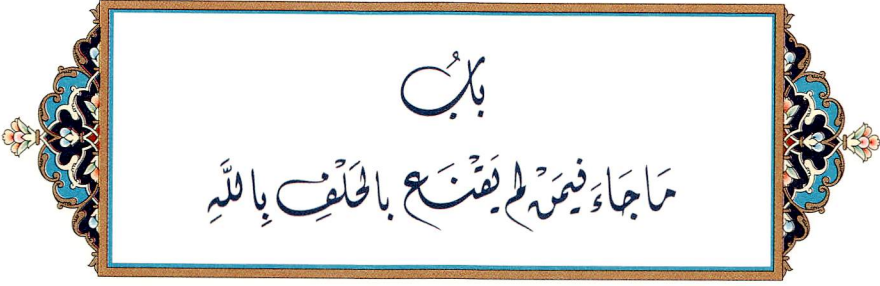 بابُ
مَا جَاءَ فِيمَنْ لم يَقْنَع بالحَلْفِ بِاللَّهِ